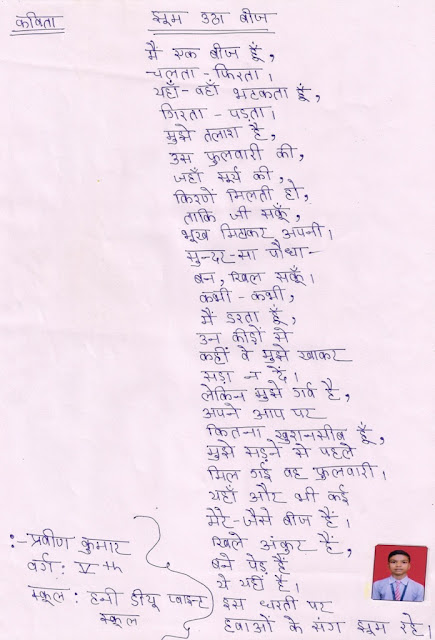 कविता
झूम उठा बीज
मैं एक बीज हूँ,
चलता-फिरता।
यहाँ-वहाँ भटकता हूँ,
गिरता-पड़ता।
मुझे तलाश है,
उस फुलवारी की,
जहाँ सूर्य की,
किरणें मिलती हो,
ताकि जी सकूँ,
भूख मिटाकर अपनी।
सुन्दर-सा पौधा-
बन, खिल सकूँ।
कभी-कभी,
मैं डरता हूँ,
उन कीड़ों से
कहीं वे मुझे खाकर
सड़ा न दें।
लेकिन मुझे गर्व है,
अपने आप पर
कितना खुशनसीब हूँ,
मुझे सड़ने से पहले
मिल गई वह फुलवारी।
यहाँ और भी कई
मेरे-जैसे बीज हैं।
खिले अंकुर हैं,
बने पेड़ हैं
ये यहीं हैं।
इस धरती पर
हवाओं के संग झूम रहे।
:- प्रवीण कुमार
वर्ग: V-th
स्कूल: हनी ड्यू प्वाइन्ट
स्कूल